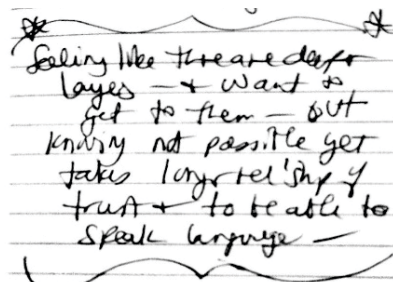 feeling like there are deeper
layers — + want to
get to them — but
knowing not possible yet
takes longer rel'ship of
trust + to be able to
speak language —